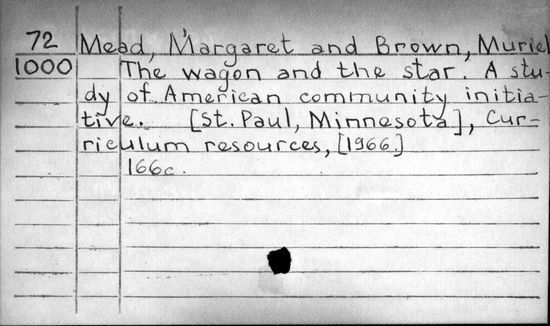 72 Mead, Margaret and Brown, Muriel
1000 The wagon and the star. A stu-
dy of American community initia-
tive. [St. Paul, Minnesota], Cur-
riculum resources, [1966]
166c.